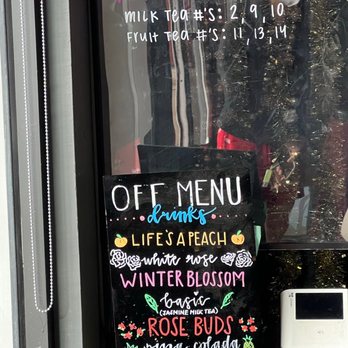 MILK TEA #'S: 2, 9, 10
FRUIT TEA #'S: 11, 13, 14
OFF MENU
drinks
LIFE'S A PEACH
white rose
WINTER BLOSSOM
basic
(JASMINE MILK TEA)
ROSE BUDS
pina colada